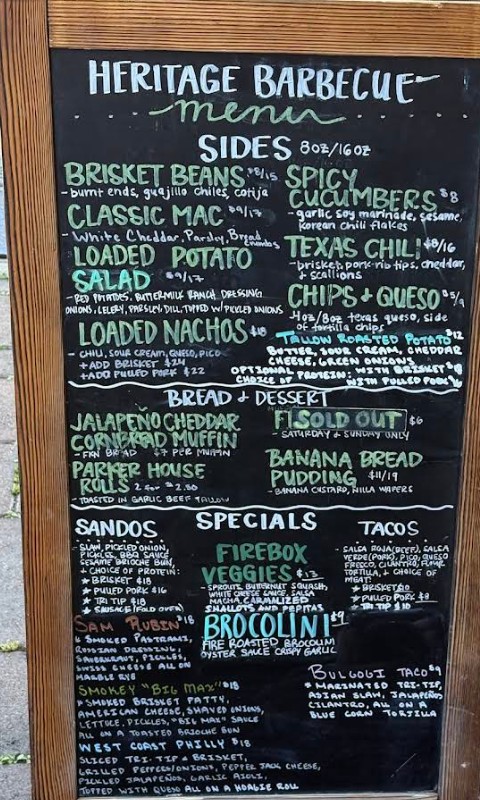 HERITAGE BARBECUE
menu
SIDES 8oz/16oz
BRISKET BEANS $8/15
- burnt ends, guajillo chiles, cotija
CLASSIC MAC $9/17
- White Cheddar, Parsley, Bread
crumbs
LOADED POTATO
SALAD $9/17
- RED POTATOES, BUTTERMILK RANCH DRESSING
ONIONS, CELERY, PARSLEY, DILL, TOPPED W/ PICKLED ONIONS
LOADED NACHOS $18
- CHILI, SOUR CREAM, QUESO, PICO
+ ADD BRISKET $24
+ ADD PULLED PORK $22
SPICY
CUCUMBERS $8
- garlic soy marinade, sesame,
Korean chili flakes
TEXAS CHILI $8/16
- brisket, pork rib tips, cheddar,
+ scallions
CHIPS + QUESO $5/9
4oz/8oz texas queso, side
of tortilla chips
TALLOW ROASTED POTATO $12
BUTTER, SOUR CREAM, CHEDDAR
CHEESE, GREEN ONIONS
OPTIONAL PROTEIN: WITH BRISKET
CHOICE OF WITH PULLED PORK
BREAD + DESSERT
JALAPEÑO CHEDDAR
CORNBREAD MUFFIN
- FKN BREAD $7 PER MUFFIN
PARKER HOUSE
ROLLS 2 for $2.50
- TOASTED IN GARLIC BEEF TALLOW
F SOLD OUT $6
- SATURDAY & SUNDAY ONLY
BANANA BREAD
PUDDING $11/19
- BANANA CUSTARD, NILLA WAFERS
SANDOS
- SLAW, PICKLED ONION,
PICKLES, BBQ SAUCE
SESAME BRIOCHE BUN,
+ CHOICE OF PROTEIN:
★ BRISKET $18
★ PULLED PORK $16
★ TRI TIP $18
★ SAUSAGE (FOLD OVER)
SAM RUBIN $18
* SMOKED PASTRAMI,
RUSSIAN DRESSING,
SAUERKRAUT, PICKLES,
SWISS CHEESE ALL ON
MARBLE RYE
SMOKEY "BIG MAX" $18
* SMOKED BRISKET PATTY,
AMERICAN CHEESE, SHAVED ONIONS,
LETTUCE, PICKLES, "BIG MAX" SAUCE
ALL ON A TOASTED BRIOCHE BUN
WEST COAST PHILLY $18
SLICED TRI-TIP & BRISKET,
GRILLED PEPPERS/ONIONS, PEPPER JACK CHEESE,
PICKLED JALAPEÑOS, GARLIC AIOLI,
TOPPED WITH QUESO ALL ON A HOAGIE ROLL
SPECIALS
FIREBOX
VEGGIES $13
- SPROUTS, BUTTERNUT SQUASH,
WHITE CHEESE SAUCE, SALSA
MACHA, CARAMALIZED
SHALLOTS AND PEPITAS
BROCOLINI $9
FIRE ROASTED BROCOLINI
OYSTER SAUCE CRISPY GARLIC
TACOS
- SALSA ROJA (BEEF), SALSA
VERDE (PORK), PICO, QUESO
FRESCO, CILANTRO, FLOUR
TORTILLA, + CHOICE OF
MEAT:
★ BRISKET
★ PULLED PORK $9
★ TRI TIP $10
BULGOGI TACO $9
* MARINATED TRI-TIP,
ASIAN SLAW, JALAPEÑOS
CILANTRO, ALL ON A
BLUE CORN TORTILLA